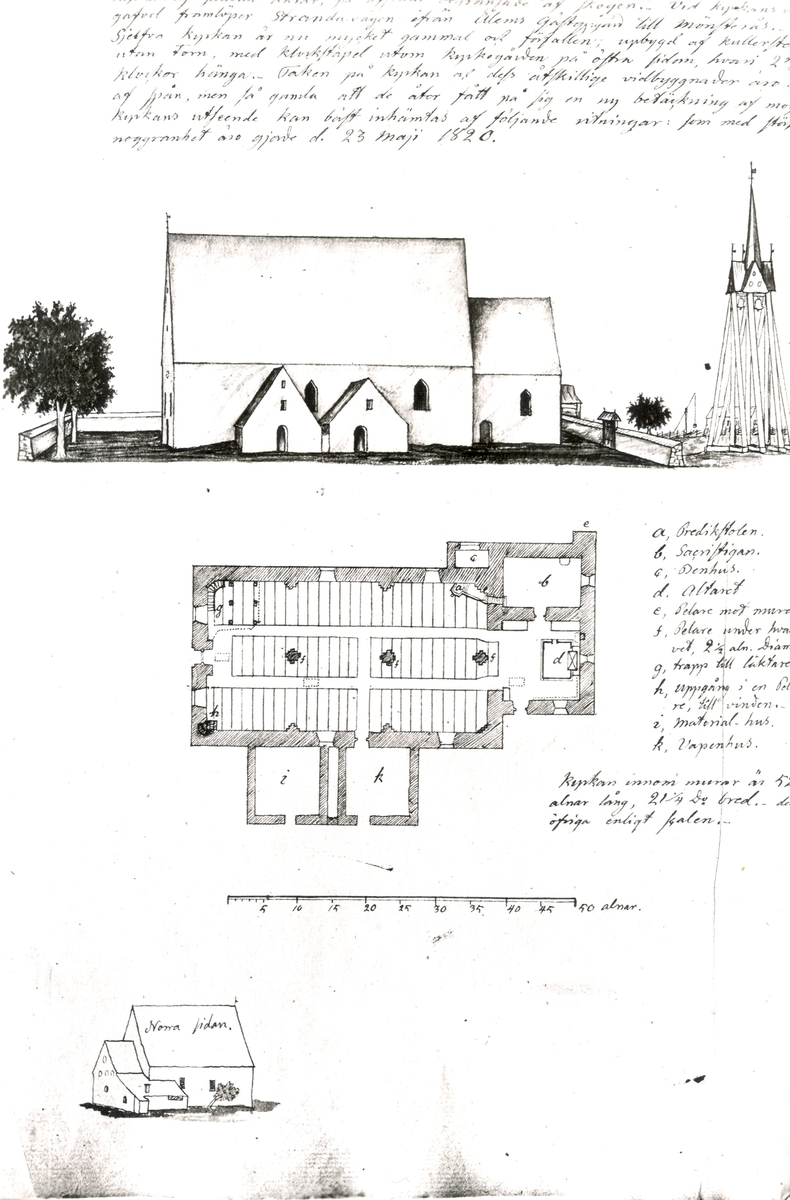 gafvel framlöper Strandavägen ifrån Ålems Gästgifvargård till Mönsterås.-
Sjelfva kyrkan är nu mycket gammal och förfallen; upbygd af kullerste
utan torn, med klockstapel utom kyrkogården på östra sidan, hvari 2ne
klockor hänga.- Taken på kyrkan och dess åtskillige vidbyggnader äro
af spån, men så gamla att de åter fått på sig en ny betäckning af mos
kyrkans utseende kan bäst inhämtas af följande ritningar: som med stör
noggranhet äro gjorde d. 23 Maji 1820.
a, Predikstolen.
b, Sacristigan.
c, Benhus.
d, Altaret
e, Pelare mot mure
f, Pelare under hva
vet, 2½ aln. Diam
g, trapp till läktare
h, uppgång i en Pel
re, till vinden.-
i, Material-hus.
k, Vapenhus.
e
c
b
a
g
f
f
f
d
h
i
k
Kyrkan innom murar är 52
alnar lång, 21¼ Do bred.- de
öfriga enligt skalen.-
5 10 15 20 25 30 35 40 45 50 alnar.
Norra sidan.